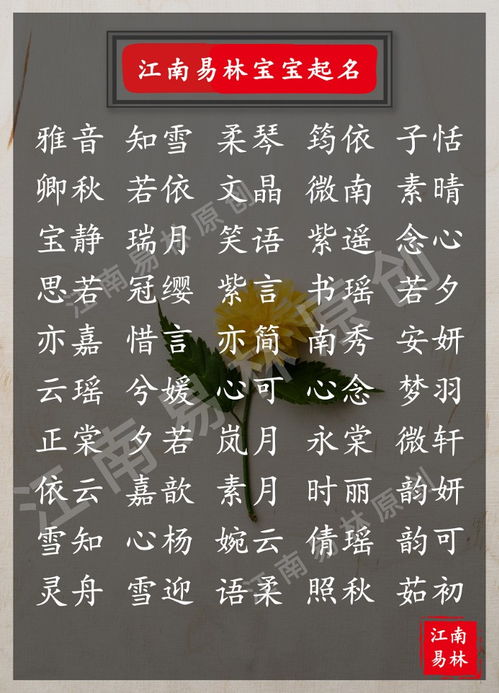 江南易林宝宝起名
雅音 知雪 柔琴 筠依 子恬
卿秋 若依 文晶 微南 素晴
宝静 瑞月 笑语 紫遥 念心
思若 冠缨 紫言 书瑶 若夕
亦嘉 惜言 亦简 南秀 安妍
云瑶 兮媛 心可 心念 梦羽
正棠 夕若 岚月 永棠 微轩
依云 嘉歆 素月 时丽 韵妍
雪知 心杨 婉云 倩瑶 韵可
灵舟 雪迎 语柔 照秋 茹初
江南
易林
江南易林原创
江南易林原创
江南易林原创